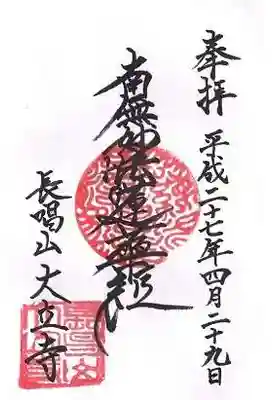 奉拝 平成二十七年四月二十九日
南無妙法蓮華経
長唱山大立寺